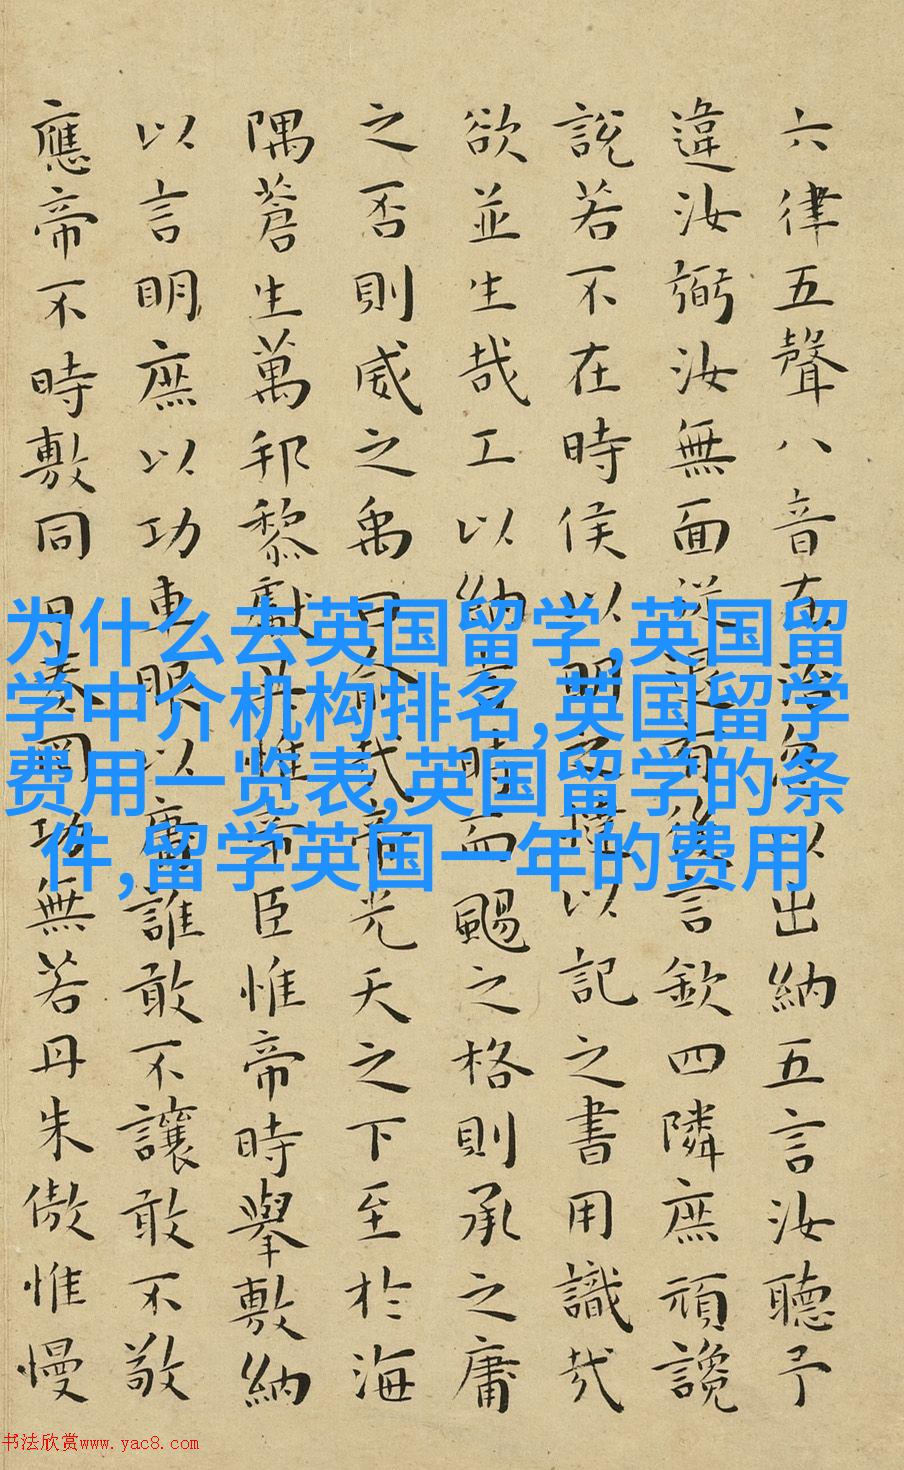 六律五聲八音在治忽以出納五言汝聽予
違汝弼汝無面從退有後言欽四隣庶頑讒
說若不在時侯以明之撻以記之書用識哉
欲並生哉工以納言時而颺之格則承之庸
之否則威之禹曰俞哉帝光天之下至於海
隅蒼生萬邦黎獻共惟帝臣惟帝時舉敷納
以言明庶以功車服以庸誰敢不讓敢不敬
應帝不時敷同日奏罔功無若丹朱傲惟慢
为什么去英国留学,英国留
学中介机构排名,英国留学
费用一览表,英国留学的条
件,留学英国一年的费用
书法欣赏www.yac8.com